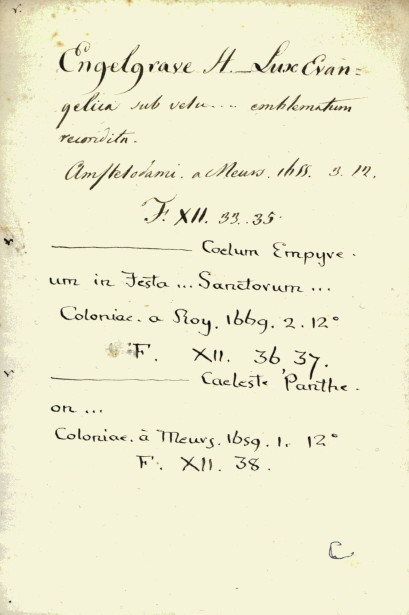 Engelgrave H. Lux Evan=
gelica sub velu.... emblematum
recondita.
Amstelodami. a Meurs. 1655. 3. 12.
F. XII. 33. 35.
——— Coelum Empyre.
um in Festa ... Sanctorum ...
Coloniae. a Roy. 1669. 2. 12°
F. XII. 36 37.
——— Caeleste Panthe.
on ...
Coloniae. à Meurs. 1659. 1. 12°
F. XII. 38.
C